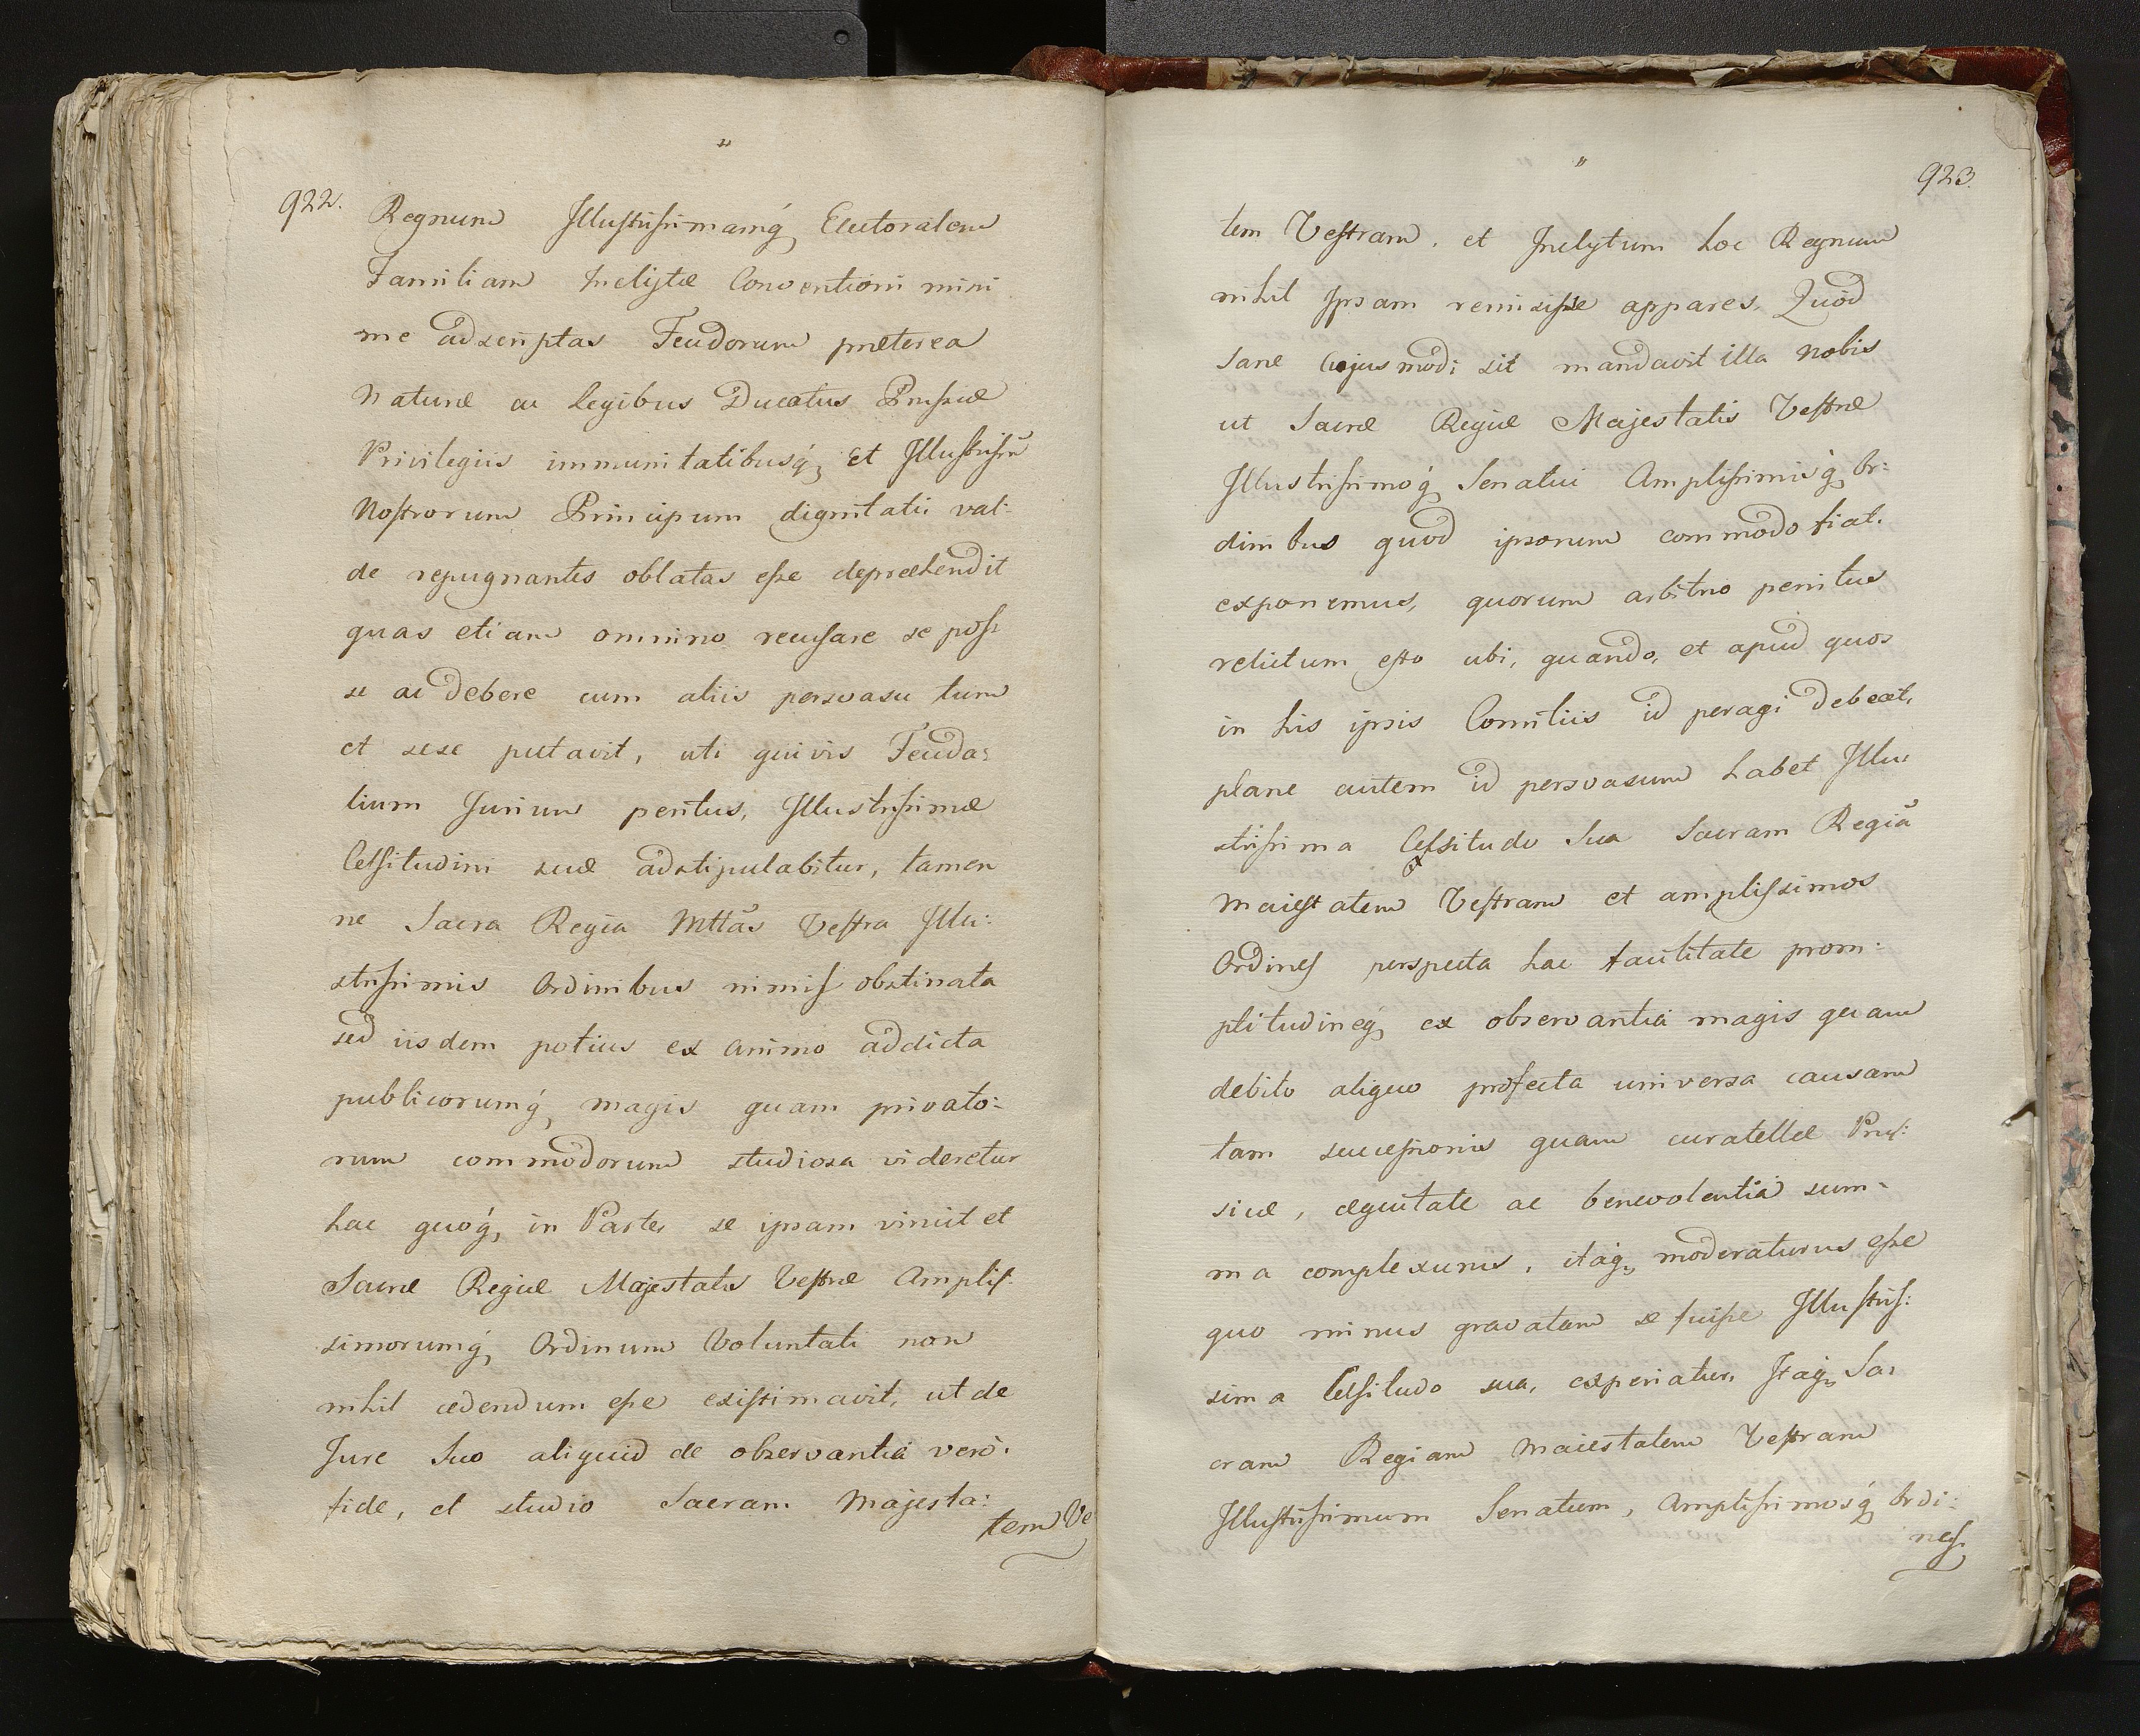 922.
Regnum Illustrissimamq́ Electoralem
Familiam Inclytæ Conventioni mini
me adscriptas Feudorum præterea
Naturæ ac Legibus Ducatus Prussiæ
Privilegiis immunitatibusq́ et Illustrisũ
Nostrorum Principum dignitatii val:
de repugnantes oblatas esse depræehendit
quas etiam omnino recusare se pos
se ac debere cum aliis persvasu tum
et sese putavit, uti quivis Feuda:
lium Jurium peritus, Illustrissimæ
Celsitudini suæ adstipulabitur, tamen
ne Sacra Regia Mttãs Vestra Illu:
strissimis Ordinibus nimis obstinata
sed iisdem potius ex animo addicta
publicorumq́ magis quam privato:
rum commodorum studiosa videretur
hac quoq́ in Partes se ipsam vincit et
Sacræ Regiæ Majestatis Vestræ Amplis:
simorumq́ Ordinum Voluntati non
nihil cedendum esse existimavit, ut de
Jure Suo aliquid de observantia verò
fide, et studio Sacram Majesta:
tem Ve
923.
tem Vestram, et Inclytum hoc Regnum
nihil Ipsam remisisse appares. Quod
Sane cujusmodi sit mandavit illa Nobis
ut Sacræ Regiæ Majestatis Vestræ
Illustrissimoq́ Senatui Amplissimisq́ Or:
dinibus quod ipsorum commodo fiat.
exponemus, quorum arbitrio penitus
relictum esto ubi, quando, et apud quos
in his ipsis Comitiis id peragi debeat,
plane autem id persvasum habet Illu:
strissima Celsitudo Sua Sacram Regiã
Maiestatem Vestram et amplissimos
Ordines perspecta hac facilitate prom:
ptitudineq́ ex observantia magis quam
debito aliquo profecta universa causam
tam successionis quam curatellæ Prus:
siæ, æquitate ac benevolentia sum-
ma complexurus, itaq́ moderaturus esse
quo minus gravatam se fuisse Illustris:
sima Celsitudo sua, experiatur. Itaq́ Sa:
cram Regiam Maiestatem Vestram
Illustrissimum Senatum, Amplissimosq́ Ordi:
nes.